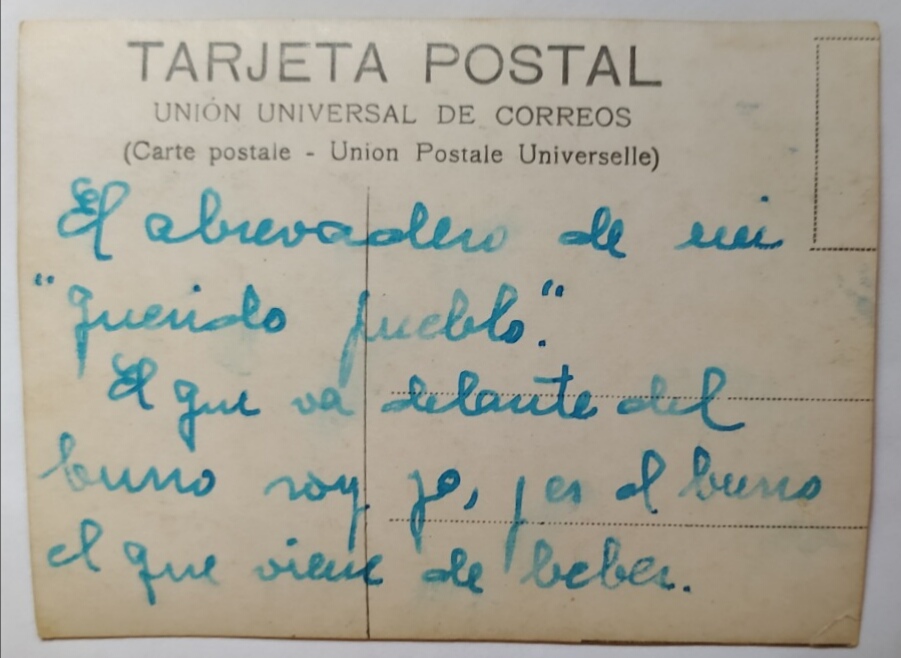 TARJETA POSTAL
UNIÓN UNIVERSAL DE CORREOS
(Carte postale - Union Postale Universelle)
El abrevadero de mi
"querido pueblo".
El que va delante del
burro soy yo, es el burro
el que viene de beber.